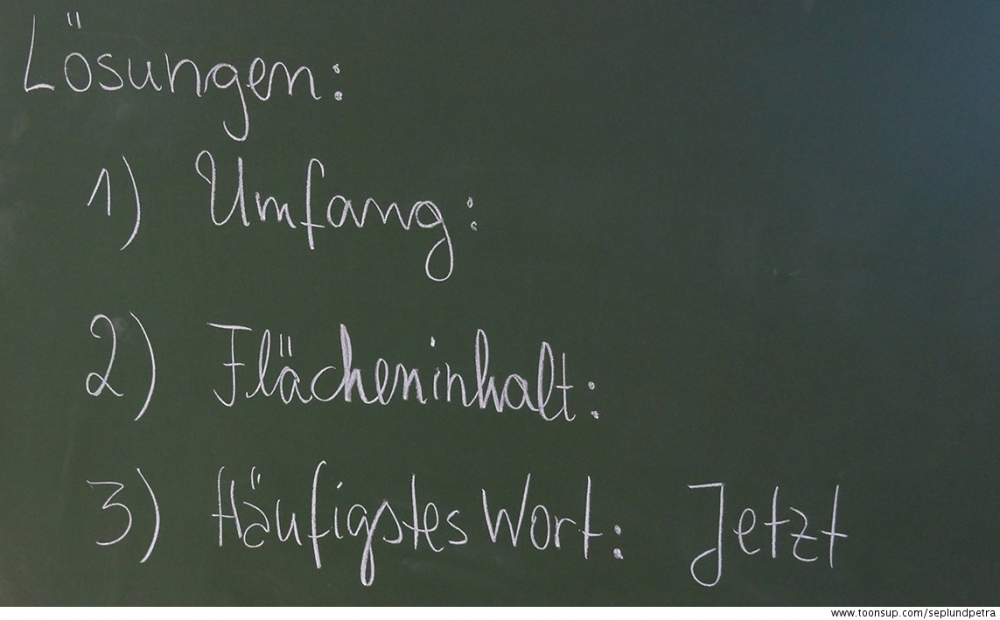 Lösungen:
1) Umfang:
2) Flächeninhalt:
3) Häufigstes Wort: Jetzt
www.toonsup.com/seplundpetra